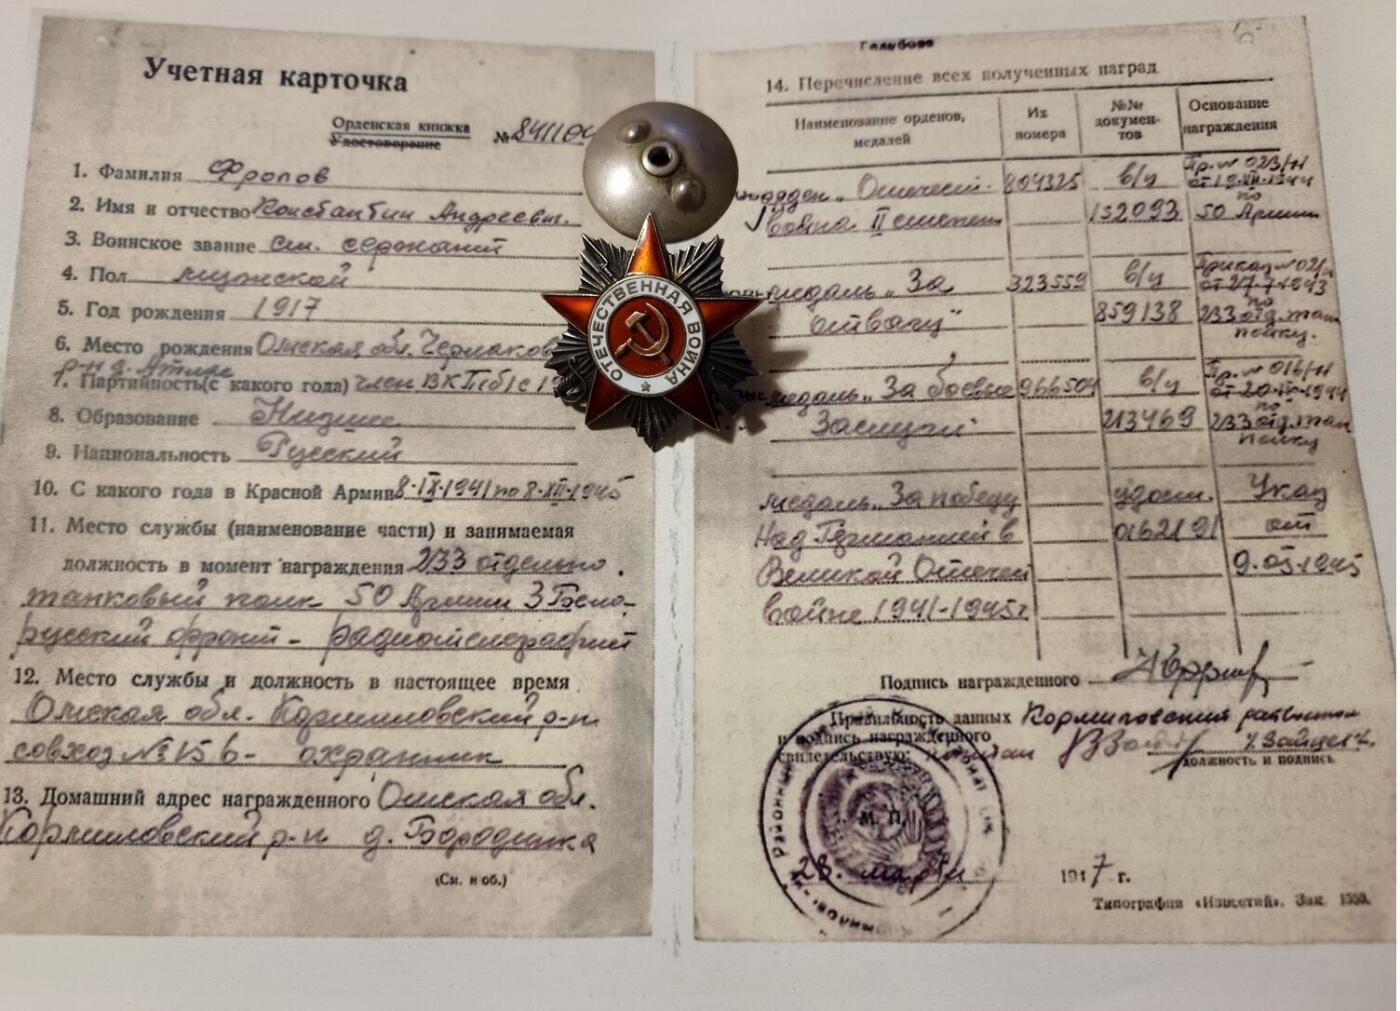 Учетная карточка
Орденская книжка
Удостоверение № 841104
1. Фамилия Фролов
2. Имя и отчество Константин Андреевич.
3. Воинское звание ст. сержант
4. Пол мужской
5. Год рождения 1917
6. Место рождения Омская обл. Черлаков
р-н д.
7. Партийность (с какого года) член ВКП(б) с 19
8. Образование Низшее
9. Национальность Русский
10. С какого года в Красной Армии 8-IX-1941 по 8-XII-1945
11. Место службы (наименование части) и занимаемая
должность в момент награждения 233 отдельно.
танковый полк 50 Армии 3 Бело-
русский фронт - радиотелеграфист
12. Место службы и должность в настоящее время
Омская обл. Кормиловский р-н
совхоз № 156 - охранник
13. Домашний адрес награжденного Омская обл.
Кормиловский р-н д. Бородинка
(См. н об.)
ОТЕЧЕСТВЕННАЯ ВОЙНА
14. Перечисление всех полученных наград
Наименование орденов, медалей
Их номера
№№ документов
Основание награждения
орден „Отечест. 804325 в/у Пр. № 023/н от 19.VII.1944
война II степени 152093 по 50 Армии
медаль „За 323559 в/у Приказ № 021/н от 27.7.1943
отвагу" 859138 по 233 отд. тан полку.
медаль „За боевые 966504 в/у Пр. № 016/н
Заслуги" 213469 по 233 отд. тан полку
медаль „За победу удост. Указ
Над Германией в 0162191 от
Великой Отечест 9.05.1945
войне 1941-1945г
Подпись награжденного
Правильность данных Кормиловский райвоенком
и подпись награжденного
свидетельствую: капитан /Зайцев/.
должность и подпись
М. П.
28. марта 1947 г.
Типография «Известий». Зак. 1550.